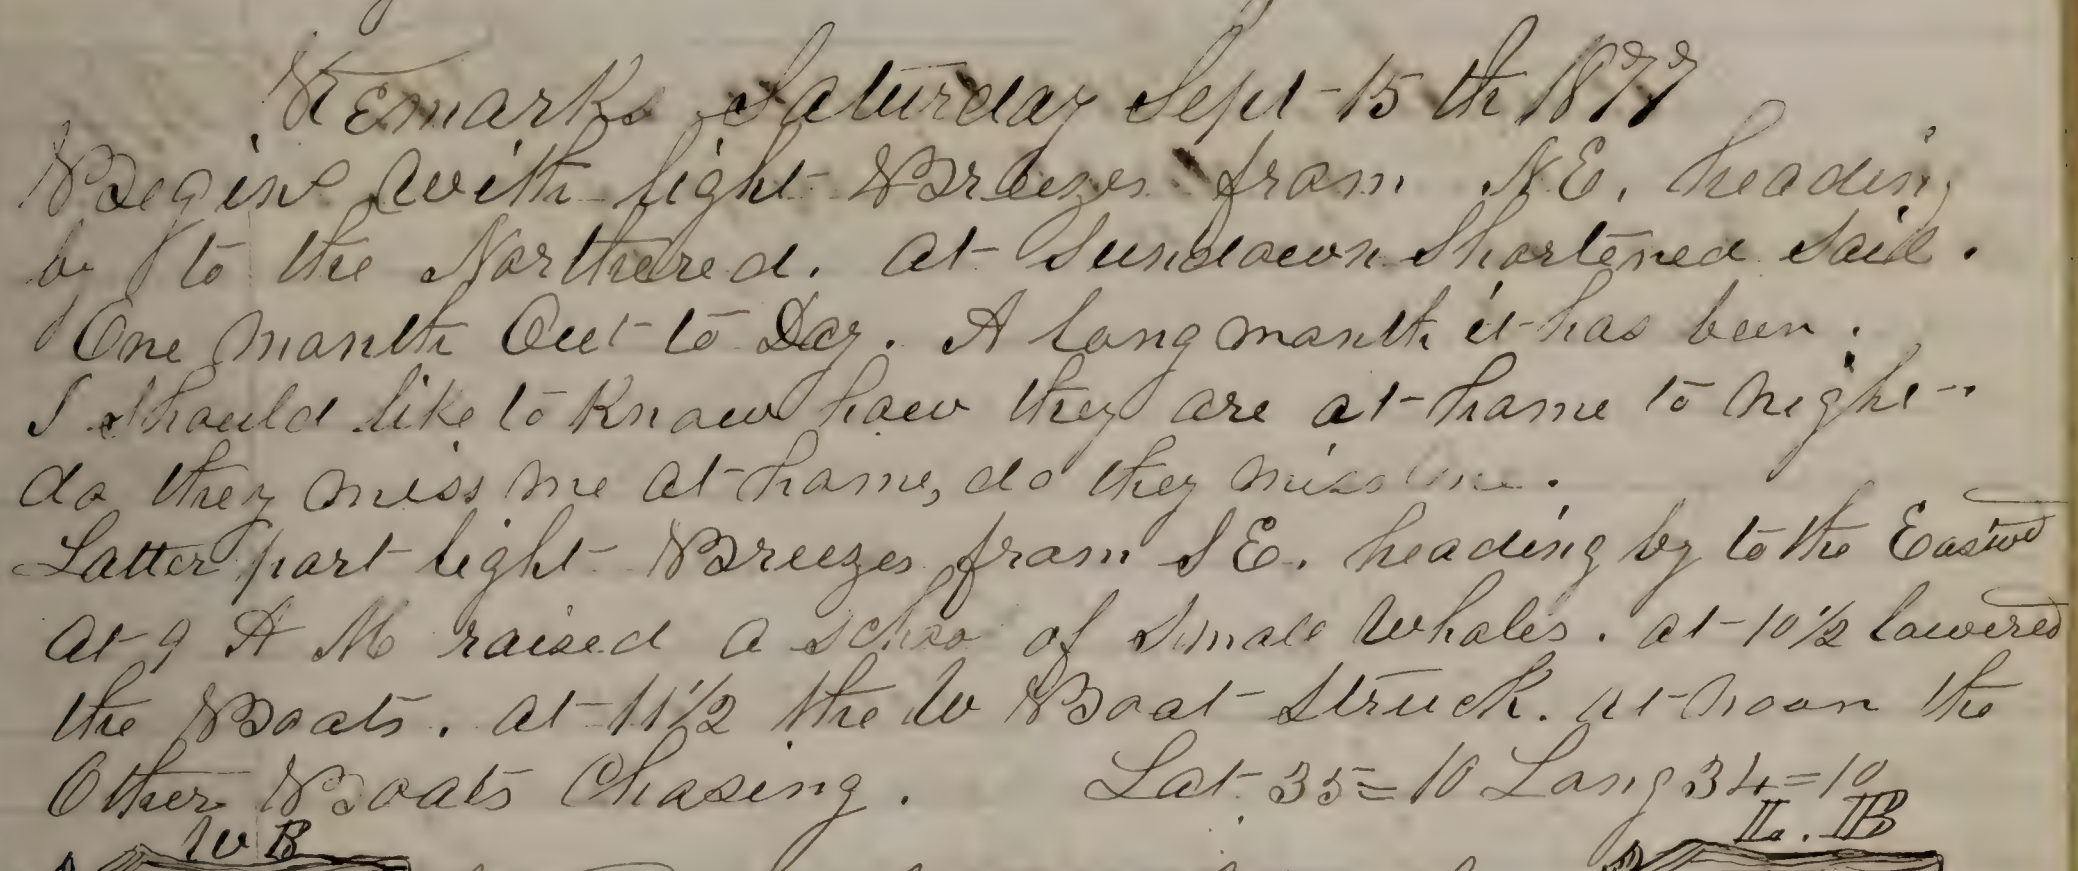 Remarks Saturday Sept-15 th 1877
Begins with light Breezes from N.E. heading
by to the Northered. At Sundown Shortened Sail.
One month Out to Day. A long month it has been.
I should like to Know how they are at home to night-
do they miss me at home, do they miss me.
Latter part light Breezes from S E. heading by to the Eastwd
At 9 A M raised a schoo of small Whales. at 10 1/2 lowered
the Boats. at 11 1/2 the W Boat Struck. At noon the
Other Boats Chasing. Lat 35=10 Long 34=10
W B
B